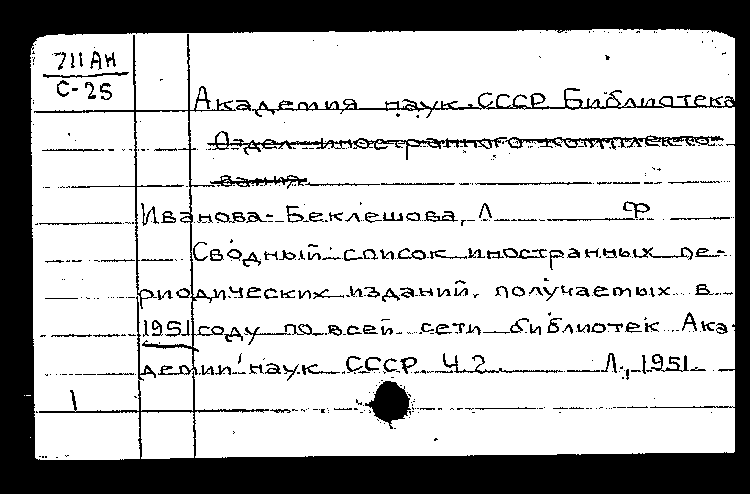 711 АН
С-25
Академия наук СССР Библиотека
Отдел иностранного комплекто-
вания
Иванова-Беклешова, Л Ф
Сводный список иностранных пе-
риодических изданий, получаемых в
1951 году по всей сети библиотек Ака-
демии наук СССР Ч 2. Л., 1951.
1